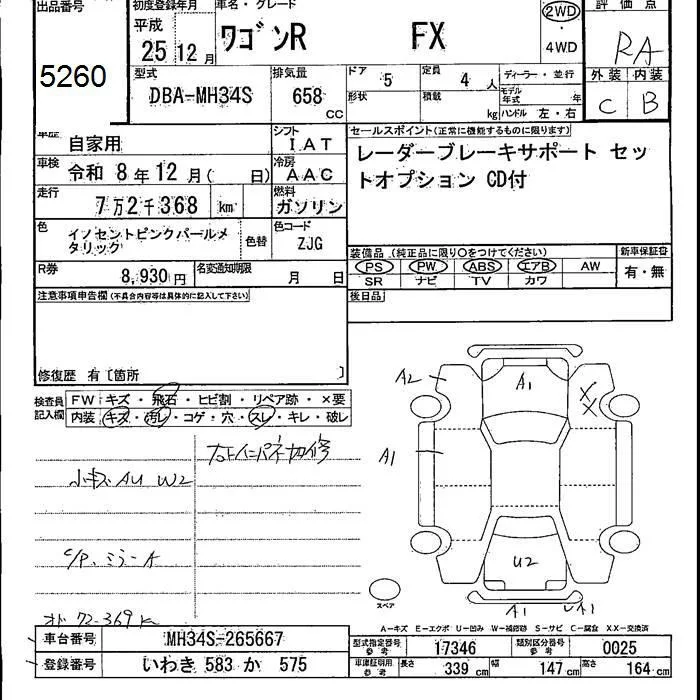 出品番号
5260
初度登録年月
平成
25 12 月
車名・グレード
ワゴンR FX
2WD
4WD
評価点
RA
外装 内装
C B
型式
DBA-MH34S
排気量
658
cc
ドア 5
定員 4 人
形状
積載 kg
ディーラー・並行
モデル年式 年
ハンドル 左・右
車歴 自家用
シフト
IAT
車検 令和 8 年 12 月( 日)
冷房
AAC
走行 7万2千368 km
燃料
ガソリン
色 イノセントピンクパールメタリック
色替
色コード
ZJG
R券 8,930 円
名変通知期限
月 日
セールスポイント(正常に機能するものに限ります)
レーダーブレーキサポート セッ
トオプション CD付
装備品(純正品に限り○をつけてください)
PS PW ABS エアB AW
SR ナビ TV カワ
新車保証書
有・無
後日品
注意事項申告欄(不具合内容等は具体的に記入して下さい)
修復歴 有〔箇所 〕
検査員
記入欄
FW キズ・飛石・ヒビ割・リペア跡・×要
内装 キズ・汚レ・コゲ・穴・スレ・キレ・破レ
小キズ AU W2
C/P、ミラーA
オド 72-369 K
A1
A2
XX
A1
U2
A1
UA1
スペア
A-キズ E-エクボ U-凹み W-補修跡 S-サビ C-腐食 XX-交換済
車台番号 MH34S-265667
登録番号 いわき 583 か 575
型式指定番号
参考
17346
類別区分番号
参考
0025
車庫証明用
参考
長さ 339 cm
幅 147 cm
高さ 164 cm